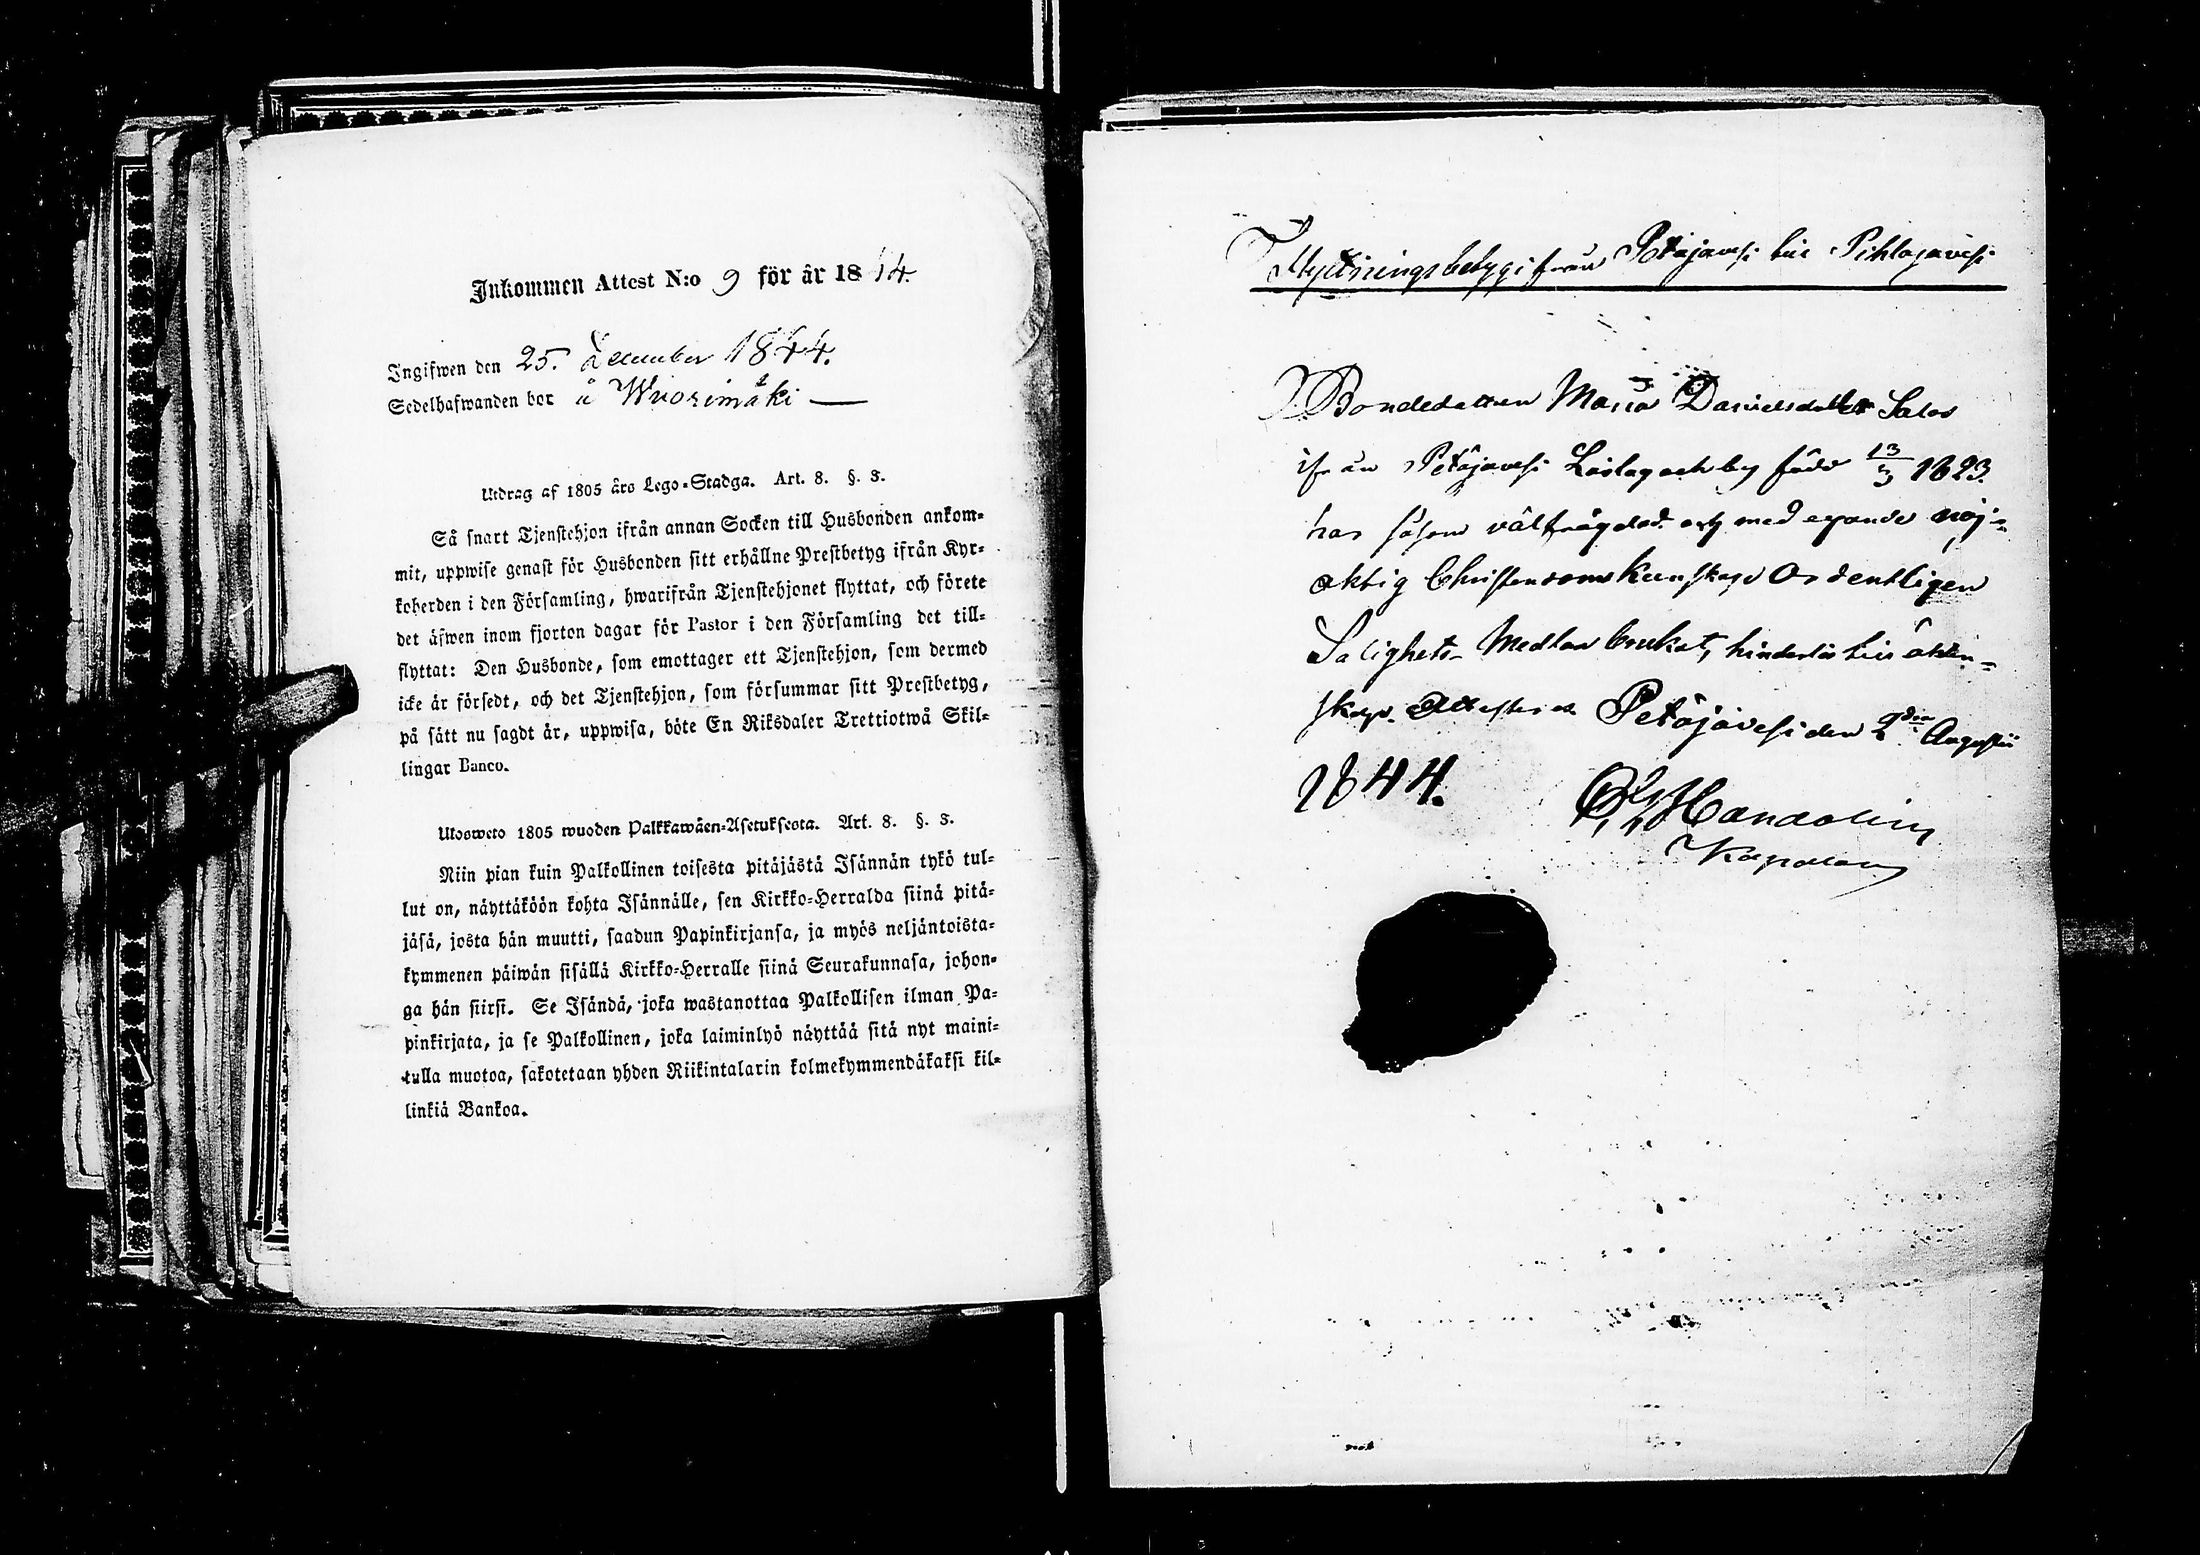 Inkommen Attest N:o 9 för år 1844.
Ingifwen den 25. December 1844.
Sedelhafwanden bor å Wuorimäki —
Utdrag af 1805 års Lego-Stadga. Art. 8. §. 3.
Så snart Tjenstehjon ifrån annan Socken till Husbonden ankom-
mit, uppwise genast för Husbonden sitt erhållne Prestbetyg ifrån Kyr-
koherden i den Församling, hwarifrån Tjenstehjonet flyttat, och förete
det äfwen inom fjorton dagar för Pastor i den Församling det till-
flyttat: Den Husbonde, som emottager ett Tjenstehjon, som dermed
icke är försedt, och det Tjenstehjon, som försummar sitt Prestbetyg,
på sätt nu sagdt är, uppwisa, böte En Riksdaler Trettiotwå Skil-
lingar Banco.
Ulosweto 1805 wuoden Palkkawäen-Asetuksesta. Art. 8. §. 3.
Niin pian kuin Palkollinen toisesta pitäjästä Isännän tykö tul-
lut on, näyttäköön kohta Isännälle, sen Kirkko-Herralda siinä pitä-
jäsä, josta hän muutti, saadun Papinkirjansa, ja myös neljäntoista-
kymmenen päiwän sisällä Kirkko-Herralle siinä Seurakunnasa, johon-
ga hän siirsi. Se Isändä, joka wastanottaa Palkollisen ilman Pa-
pinkirjata, ja se Palkollinen, joka laiminlyö näyttää sitä nyt maini-
tulla muotoa, sakotetaan yhden Riikintalarin kolmekymmendäkaksi kil-
linkiä Bankoa.
Flyttningsbetyg ifrån Petäjävesi till Pihlajavesi
Bondedottren Maria Danielsdotter Salos
ifrån Petäjävesi Låslag och by född 13/3 1823.
har såsom välfrägdad och med egande nöj-
aktig Christendoms Kunskap Ordentligen
Salighets Medlen brukat, hinderlös till äkten-
skap. Attesteras Petäjävesi den 2den Augusti
1844.
Handolin
Kapellan